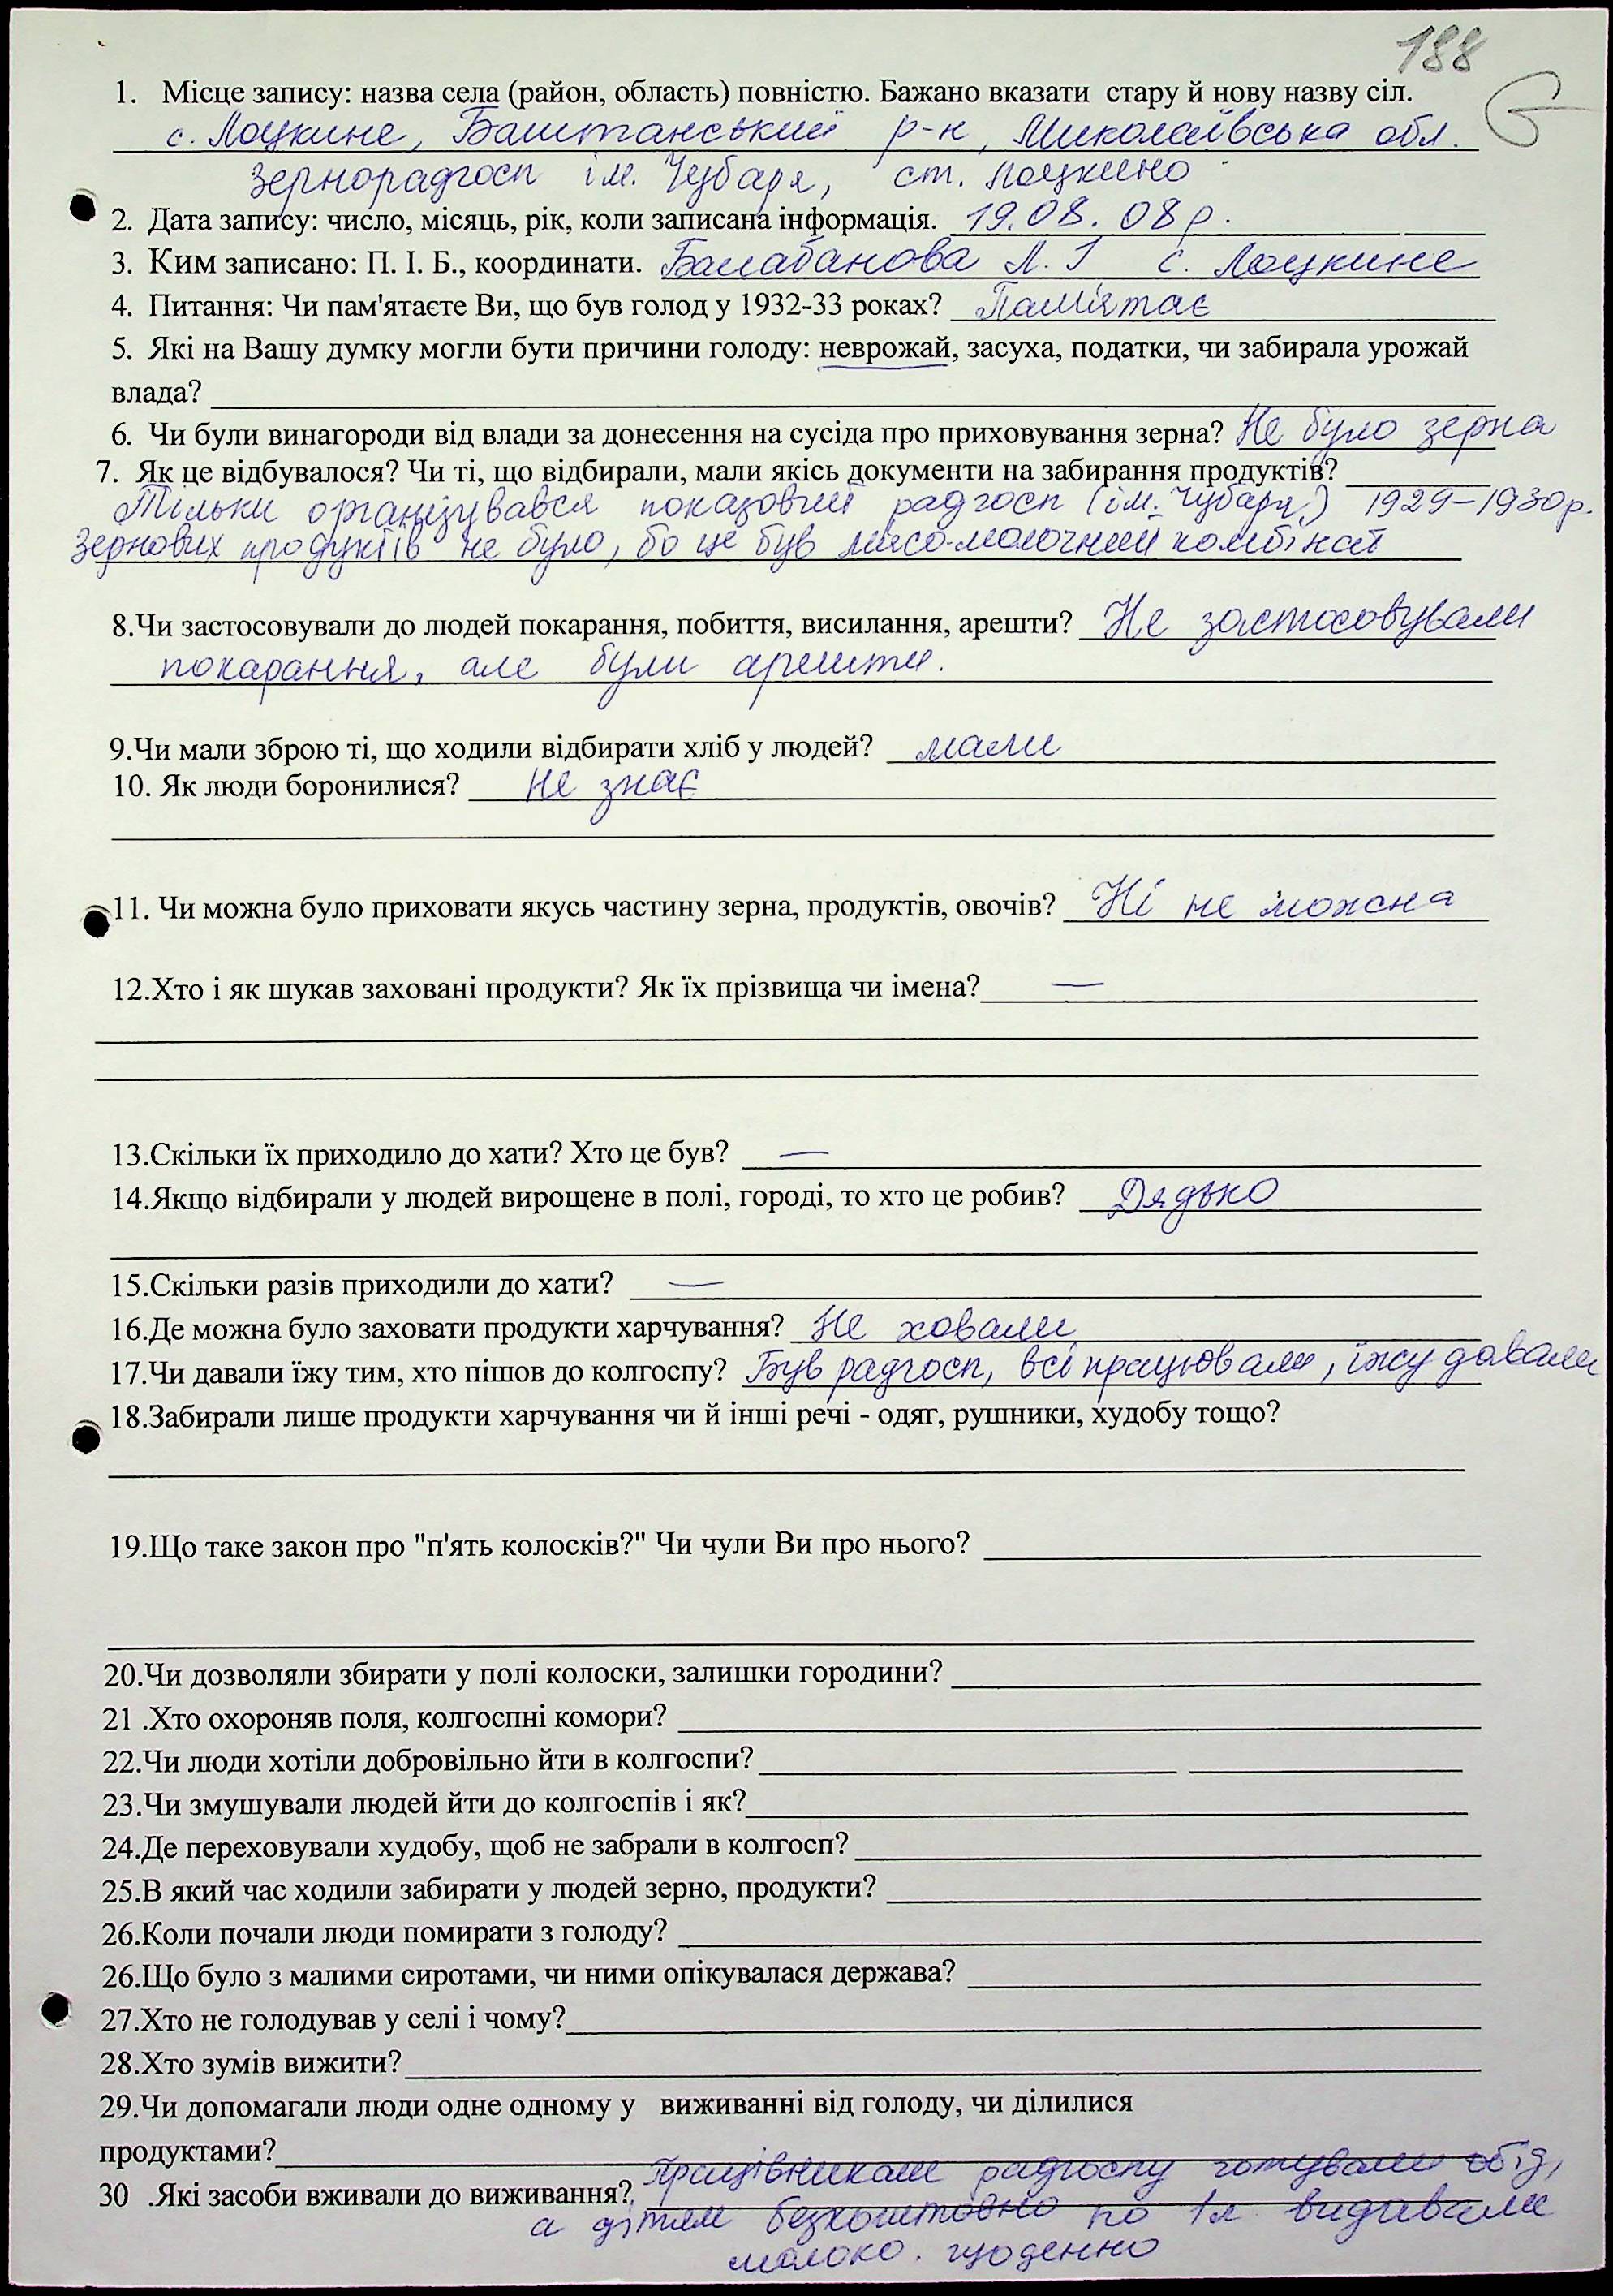 188
1. Місце запису: назва села (район, область) повністю. Бажано вказати стару й нову назву сіл.
с. Лоцкине, Баштанський р-н, Миколаївська обл.
Зернорадгосп ім. Чубаря, ст. Лоцкино
2. Дата запису: число, місяць, рік, коли записана інформація. 19.08.08р.
3. Ким записано: П. І. Б., координати. Балабанова Л. І с. Лоцкине
4. Питання: Чи пам'ятаєте Ви, що був голод у 1932-33 роках? Пам'ятає
5. Які на Вашу думку могли бути причини голоду: неврожай, засуха, податки, чи забирала урожай
влада?
6. Чи були винагороди від влади за донесення на сусіда про приховування зерна? Не було зерна
7. Як це відбувалося? Чи ті, що відбирали, мали якісь документи на забирання продуктів?
Тільки організувався показовий радгосп (ім. Чубаря) 1929-1930р.
Зернових продуктів не було, бо це був мясо-молочний комбінат
8.Чи застосовували до людей покарання, побиття, висилання, арешти? Не застосовували
покарання, але були арешти.
9.Чи мали зброю ті, що ходили відбирати хліб у людей? мали
10. Як люди боронилися? не знає
11. Чи можна було приховати якусь частину зерна, продуктів, овочів? Ні не можна
12.Хто і як шукав заховані продукти? Як їх прізвища чи імена? —
13.Скільки їх приходило до хати? Хто це був? —
14.Якщо відбирали у людей вирощене в полі, городі, то хто це робив? Дядько
15.Скільки разів приходили до хати? —
16.Де можна було заховати продукти харчування? Не ховали
17.Чи давали їжу тим, хто пішов до колгоспу? Був радгосп, всі працювали, їжу давали
18.Забирали лише продукти харчування чи й інші речі - одяг, рушники, худобу тощо?
19.Що таке закон про "п'ять колосків?" Чи чули Ви про нього?
20.Чи дозволяли збирати у полі колоски, залишки городини?
21 .Хто охороняв поля, колгоспні комори?
22.Чи люди хотіли добровільно йти в колгоспи?
23.Чи змушували людей йти до колгоспів і як?
24.Де переховували худобу, щоб не забрали в колгосп?
25.В який час ходили забирати у людей зерно, продукти?
26.Коли почали люди помирати з голоду?
26.Що було з малими сиротами, чи ними опікувалася держава?
27.Хто не голодував у селі і чому?
28.Хто зумів вижити?
29.Чи допомагали люди одне одному у виживанні від голоду, чи ділилися
продуктами?
30 .Які засоби вживали до виживання? Працівникам радгоспу готували обід,
а дітям безкоштовно по 1л видавали
молоко. щоденно